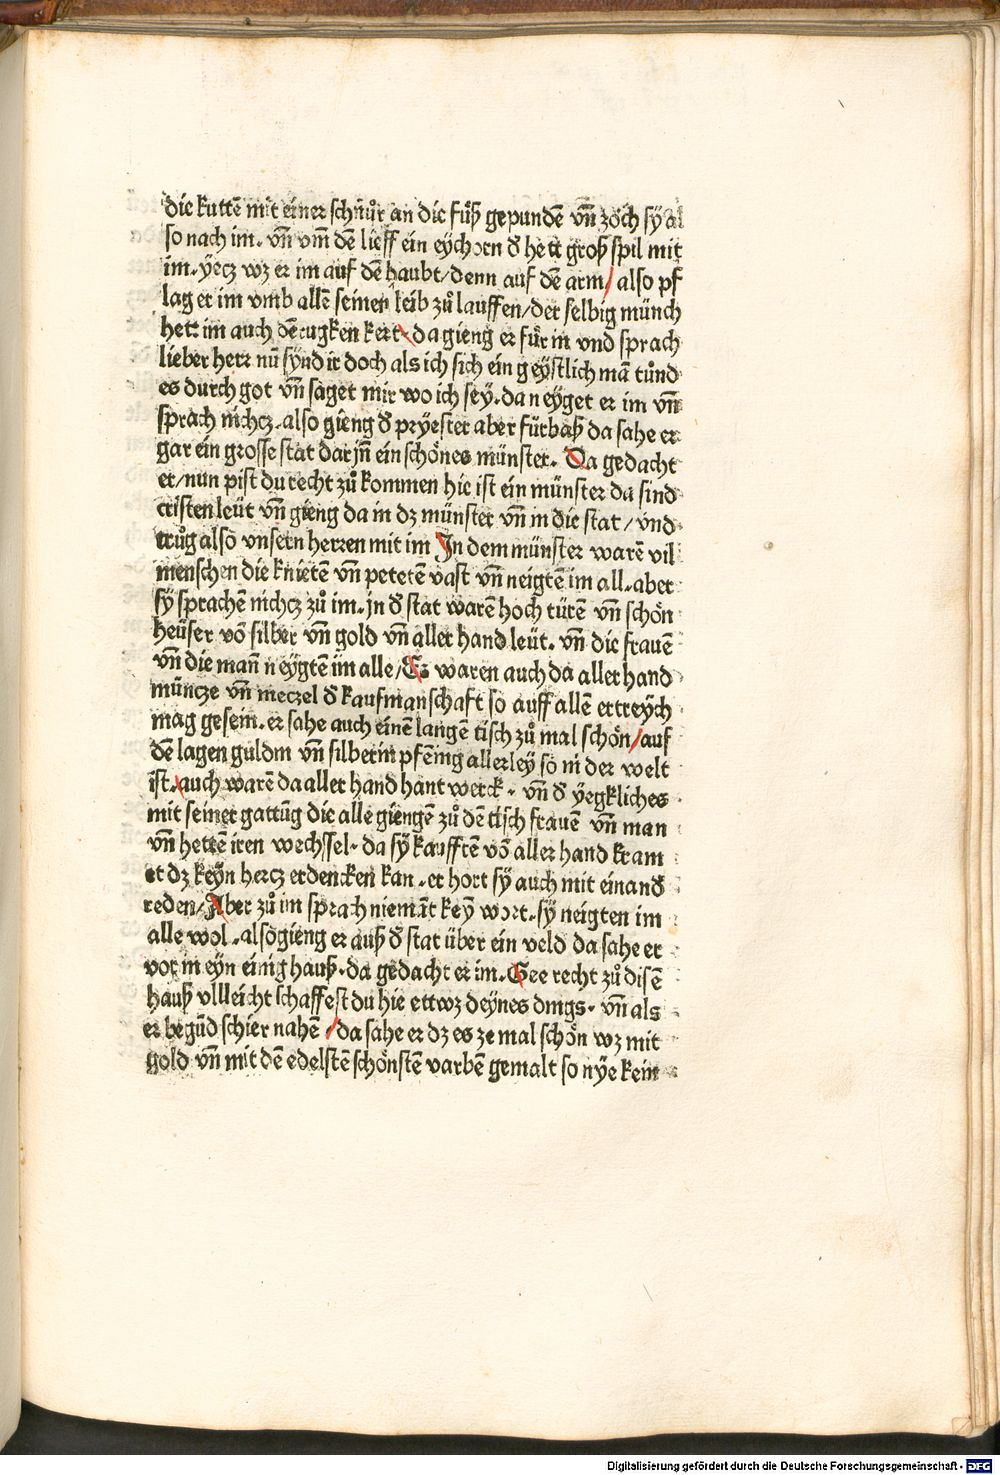 die kuttē mit einer schnůr an die fůß gepundē vn̄ zoch sy al
so nach im. vn̄ vm̄ dē lieff ein eychorn d̕ hett groß spil mit
im. yecz wz er im auf dē haubt/denn auf dē arm/ also pf
lag er im vmb allē seinen leib zů lauffen/der selbig münch
hett im auch dē rugken kert. da gieng er für in vnd sprach
lieber herr nū synd ir doch als ich sich ein geystlich mā tůnd
es durch got vn̄ saget mir wo ich sey. da neyget er im vn̄
sprach nichcz. also gieng d̕ pryester aber fürbaß da sahe er
gar ein grosse stat dar jn̄ ein schönes münster. Da gedacht
er/nun pist du recht zů kommen hie ist ein münster da sind
cristen leüt vn̄ gieng da in dz münster vn̄ in die stat/vnd
trůg also vnsern herren mit im Jn dem münster warē vil
menschen die knietē vn̄ petetē vast vn̄ neigtē im all. aber
sy sprachē nichcz zů im. jn d̕ stat warē hoch türē vn̄ schön
heüser vō silber vn̄ gold vn̄ aller hand leüt. vn̄ die frauē
vn̄ die man̄ neygtē im alle/Es waren auch da aller hand
müncze vn̄ meczel d̕ kaufmanschaft so auff allē ertreych
mag gesein. er sahe auch einē langē tisch zů mal schön/auf
dē lagen guldin vn̄ silberin pfēing allerley so in der welt
ist. auch warē da aller hand hant werck. vn̄ d̕ yegkliches
mit seiner gattūg die alle giengē zů dē tisch frauē vn̄ man
vn̄ hettē iren wechssel. da sy kaufftē vō aller hand kram
et dz keyn hercz erdencken kan. er hort sy auch mit einand̕
reden/Aber zů im sprach niemāt key̅ wort. sy neigten im
alle wol. also gieng er auß d̕ stat über ein veld da sahe er
vor in eyn einig hauß. da gedacht er im. Gee recht zů disē
hauß vlleicht schaffest du hie ettwz deynes dings. vn̄ als
er begūd schier nahē/da sahe er dz es ze mal schön wz mit
gold vn̄ mit dē edelstē schönstē varbē gemalt so nye kein
Digitalisierung gefördert durch die Deutsche Forschungsgemeinschaft - DFG